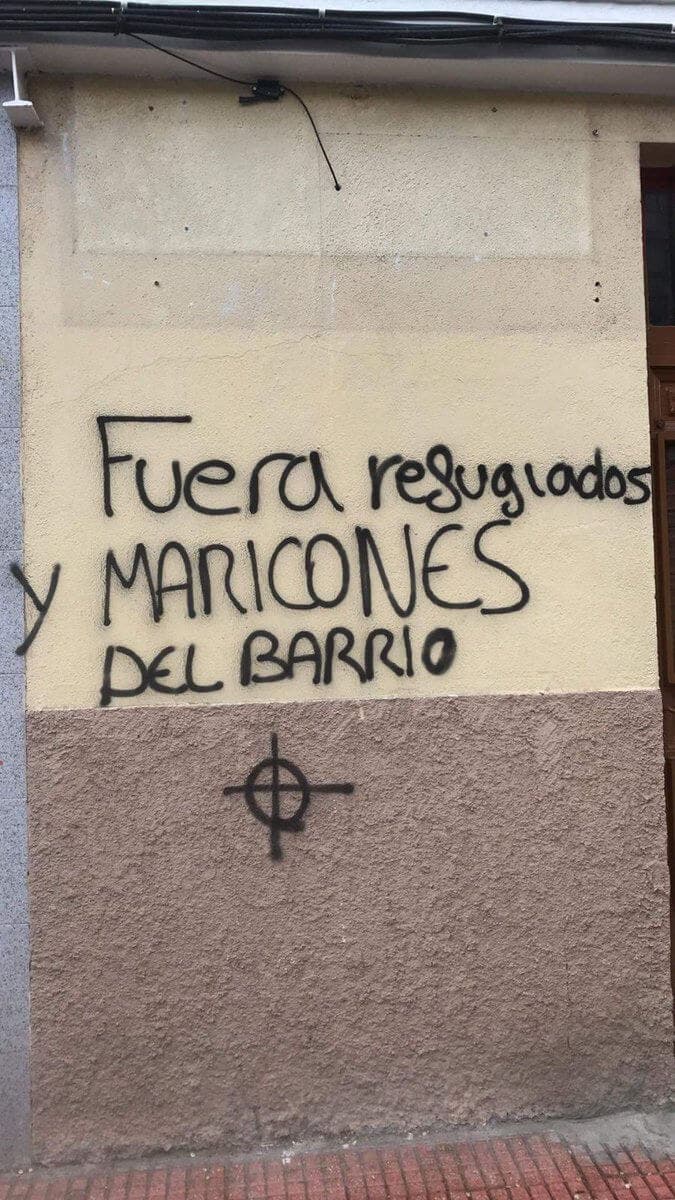 Fuera refugiados
y MARICONES
DEL BARRIO